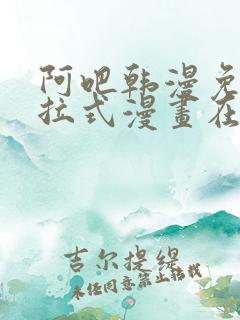 阿吧韩漫免
拉式漫畫在
吉尔提缇
未经同意禁止转载